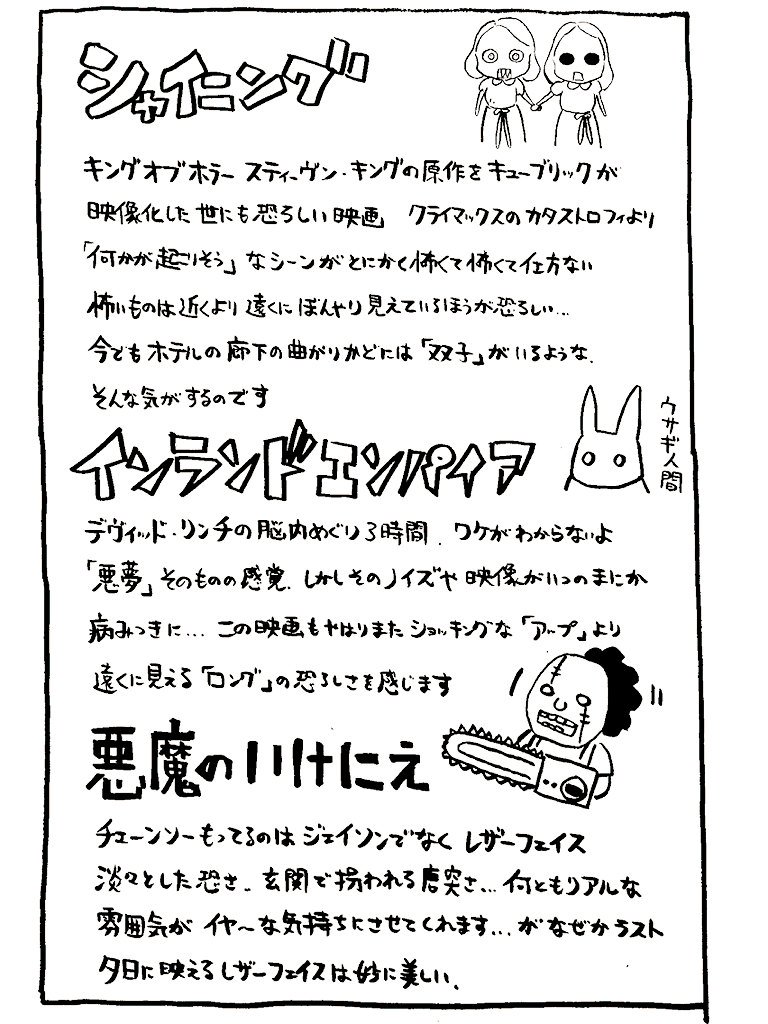 シャイニング
キングオブホラー スティーヴン・キングの原作をキューブリックが
映像化した世にも恐ろしい映画 クライマックスのカタストロフィより
「何かが起こりそう」なシーンがとにかく怖くて怖くて仕方ない
怖いものは近くより遠くにぼんやり見えているほうが恐ろしい…
今でもホテルの廊下の曲がりかどには「双子」がいるような、
そんな気がするのです
インランドエンパイア
ウサギ人間
デヴィッド・リンチの脳内めぐり3時間、ワケがわからないよ
「悪夢」そのものの感覚、しかしそのノイズや映像がいつのまにか
病みつきに… この映画もやはりまたショッキングな「アップ」より
遠くに見える「ロング」の恐ろしさを感じます
悪魔のいけにえ
チェーンソーもってるのはジェイソンでなくレザーフェイス
淡々とした恐さ、玄関で拐われる唐突さ…何ともリアルな
雰囲気がイヤ〜な気持ちにさせてくれます…がなぜかラスト
夕日に映えるレザーフェイスは妙に美しい、